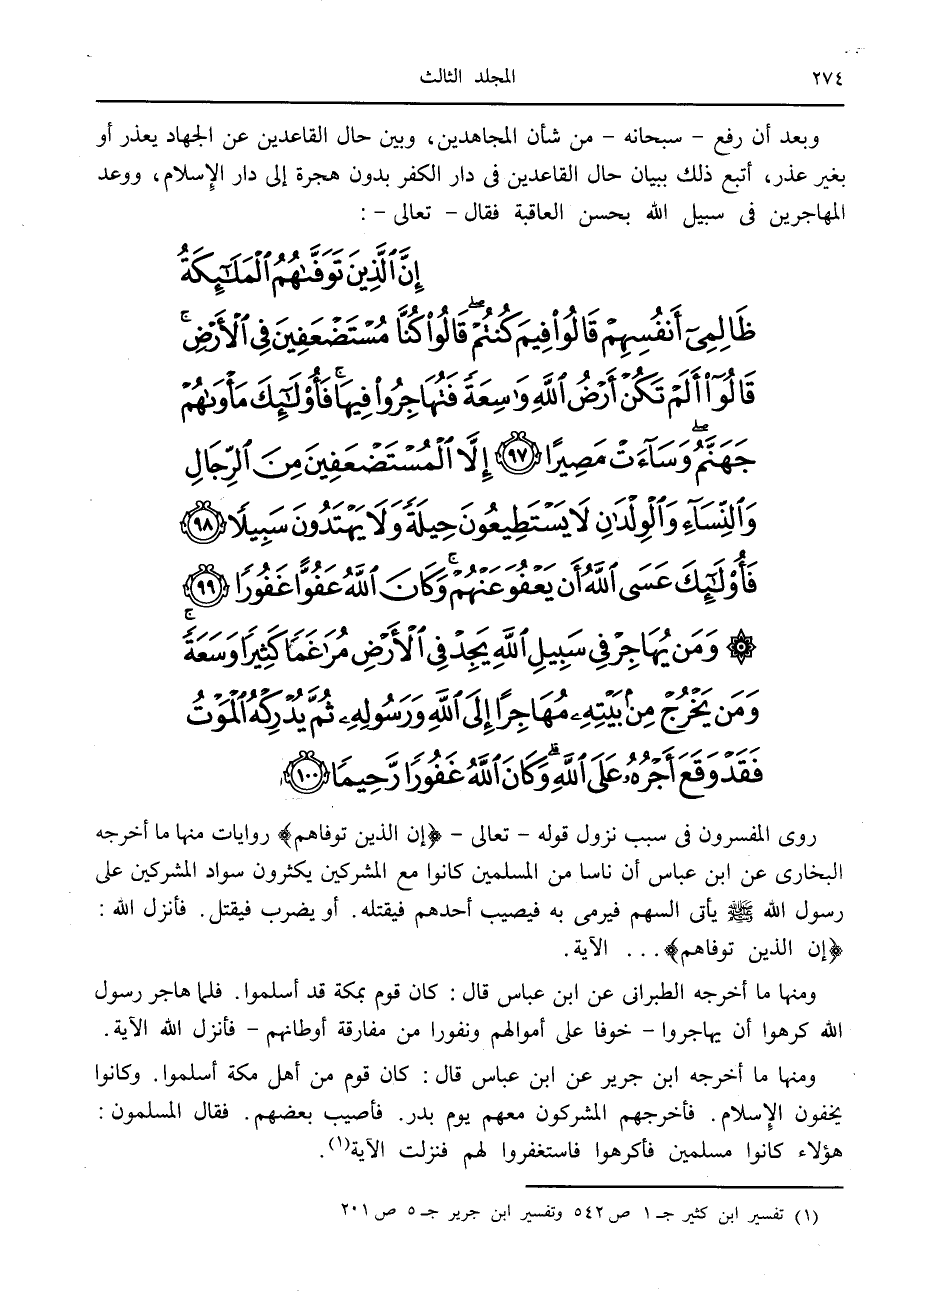 ٢٧٤ المجلد الثالث
وبعد أن رفع - سبحانه - من شأن المجاهدين، وبين حال القاعدين عن الجهاد بعذر أو
بغير عذر، أتبع ذلك ببيان حال القاعدين فى دار الكفر بدون هجرة إلى دار الإسلام، ووعد
المهاجرين فى سبيل الله بحسن العاقبة فقال - تعالى - :
إِنَّ ٱلَّذِينَ تَوَفَّىٰهُمُ ٱلْمَلَـٰٓئِكَةُ
ظَالِمِىٓ أَنفُسِهِمْ قَالُوا۟ فِيمَ كُنتُمْ ۖ قَالُوا۟ كُنَّا مُسْتَضْعَفِينَ فِى ٱلْأَرْضِ ۚ
قَالُوٓا۟ أَلَمْ تَكُنْ أَرْضُ ٱللَّهِ وَٰسِعَةً فَتُهَاجِرُوا۟ فِيهَا ۚ فَأُو۟لَـٰٓئِكَ مَأْوَىٰهُمْ
جَهَنَّمُ ۖ وَسَآءَتْ مَصِيرًا ٩٧ إِلَّا ٱلْمُسْتَضْعَفِينَ مِنَ ٱلرِّجَالِ
وَٱلنِّسَآءِ وَٱلْوِلْدَٰنِ لَا يَسْتَطِيعُونَ حِيلَةً وَلَا يَهْتَدُونَ سَبِيلًا ٩٨
فَأُو۟لَـٰٓئِكَ عَسَى ٱللَّهُ أَن يَعْفُوَ عَنْهُمْ ۚ وَكَانَ ٱللَّهُ عَفُوًّا غَفُورًا ٩٩
۞ وَمَن يُهَاجِرْ فِى سَبِيلِ ٱللَّهِ يَجِدْ فِى ٱلْأَرْضِ مُرَٰغَمًا كَثِيرًا وَسَعَةً ۚ
وَمَن يَخْرُجْ مِنۢ بَيْتِهِۦ مُهَاجِرًا إِلَى ٱللَّهِ وَرَسُولِهِۦ ثُمَّ يُدْرِكْهُ ٱلْمَوْتُ
فَقَدْ وَقَعَ أَجْرُهُۥ عَلَى ٱللَّهِ ۗ وَكَانَ ٱللَّهُ غَفُورًا رَّحِيمًا ١٠٠
روى المفسرون فى سبب نزول قوله - تعالى - ﴿إن الذين توفاهم﴾ روايات منها ما أخرجه
البخارى عن ابن عباس أن ناسا من المسلمين كانوا مع المشركين يكثرون سواد المشركين على
رسول الله ﷺ يأتى السهم فيرمى به فيصيب أحدهم فيقتله. أو يضرب فيقتل. فأنزل الله :
﴿إن الذين توفاهم﴾ ... الآية.
ومنها ما أخرجه الطبرانى عن ابن عباس قال : كان قوم بمكة قد أسلموا. فلما هاجر رسول
الله كرهوا أن يهاجروا - خوفا على أموالهم ونفورا من مفارقة أوطانهم - فأنزل الله الآية.
ومنها ما أخرجه ابن جرير عن ابن عباس قال : كان قوم من أهل مكة أسلموا. وكانوا
يخفون الإسلام. فأخرجهم المشركون معهم يوم بدر. فأصيب بعضهم. فقال المسلمون :
هؤلاء كانوا مسلمين فأكرهوا فاستغفروا لهم فنزلت الآية(١).
(١) تفسير ابن كثير جـ ١ ص ٥٤٢ وتفسير ابن جرير جـ ٥ ص ٢٠١